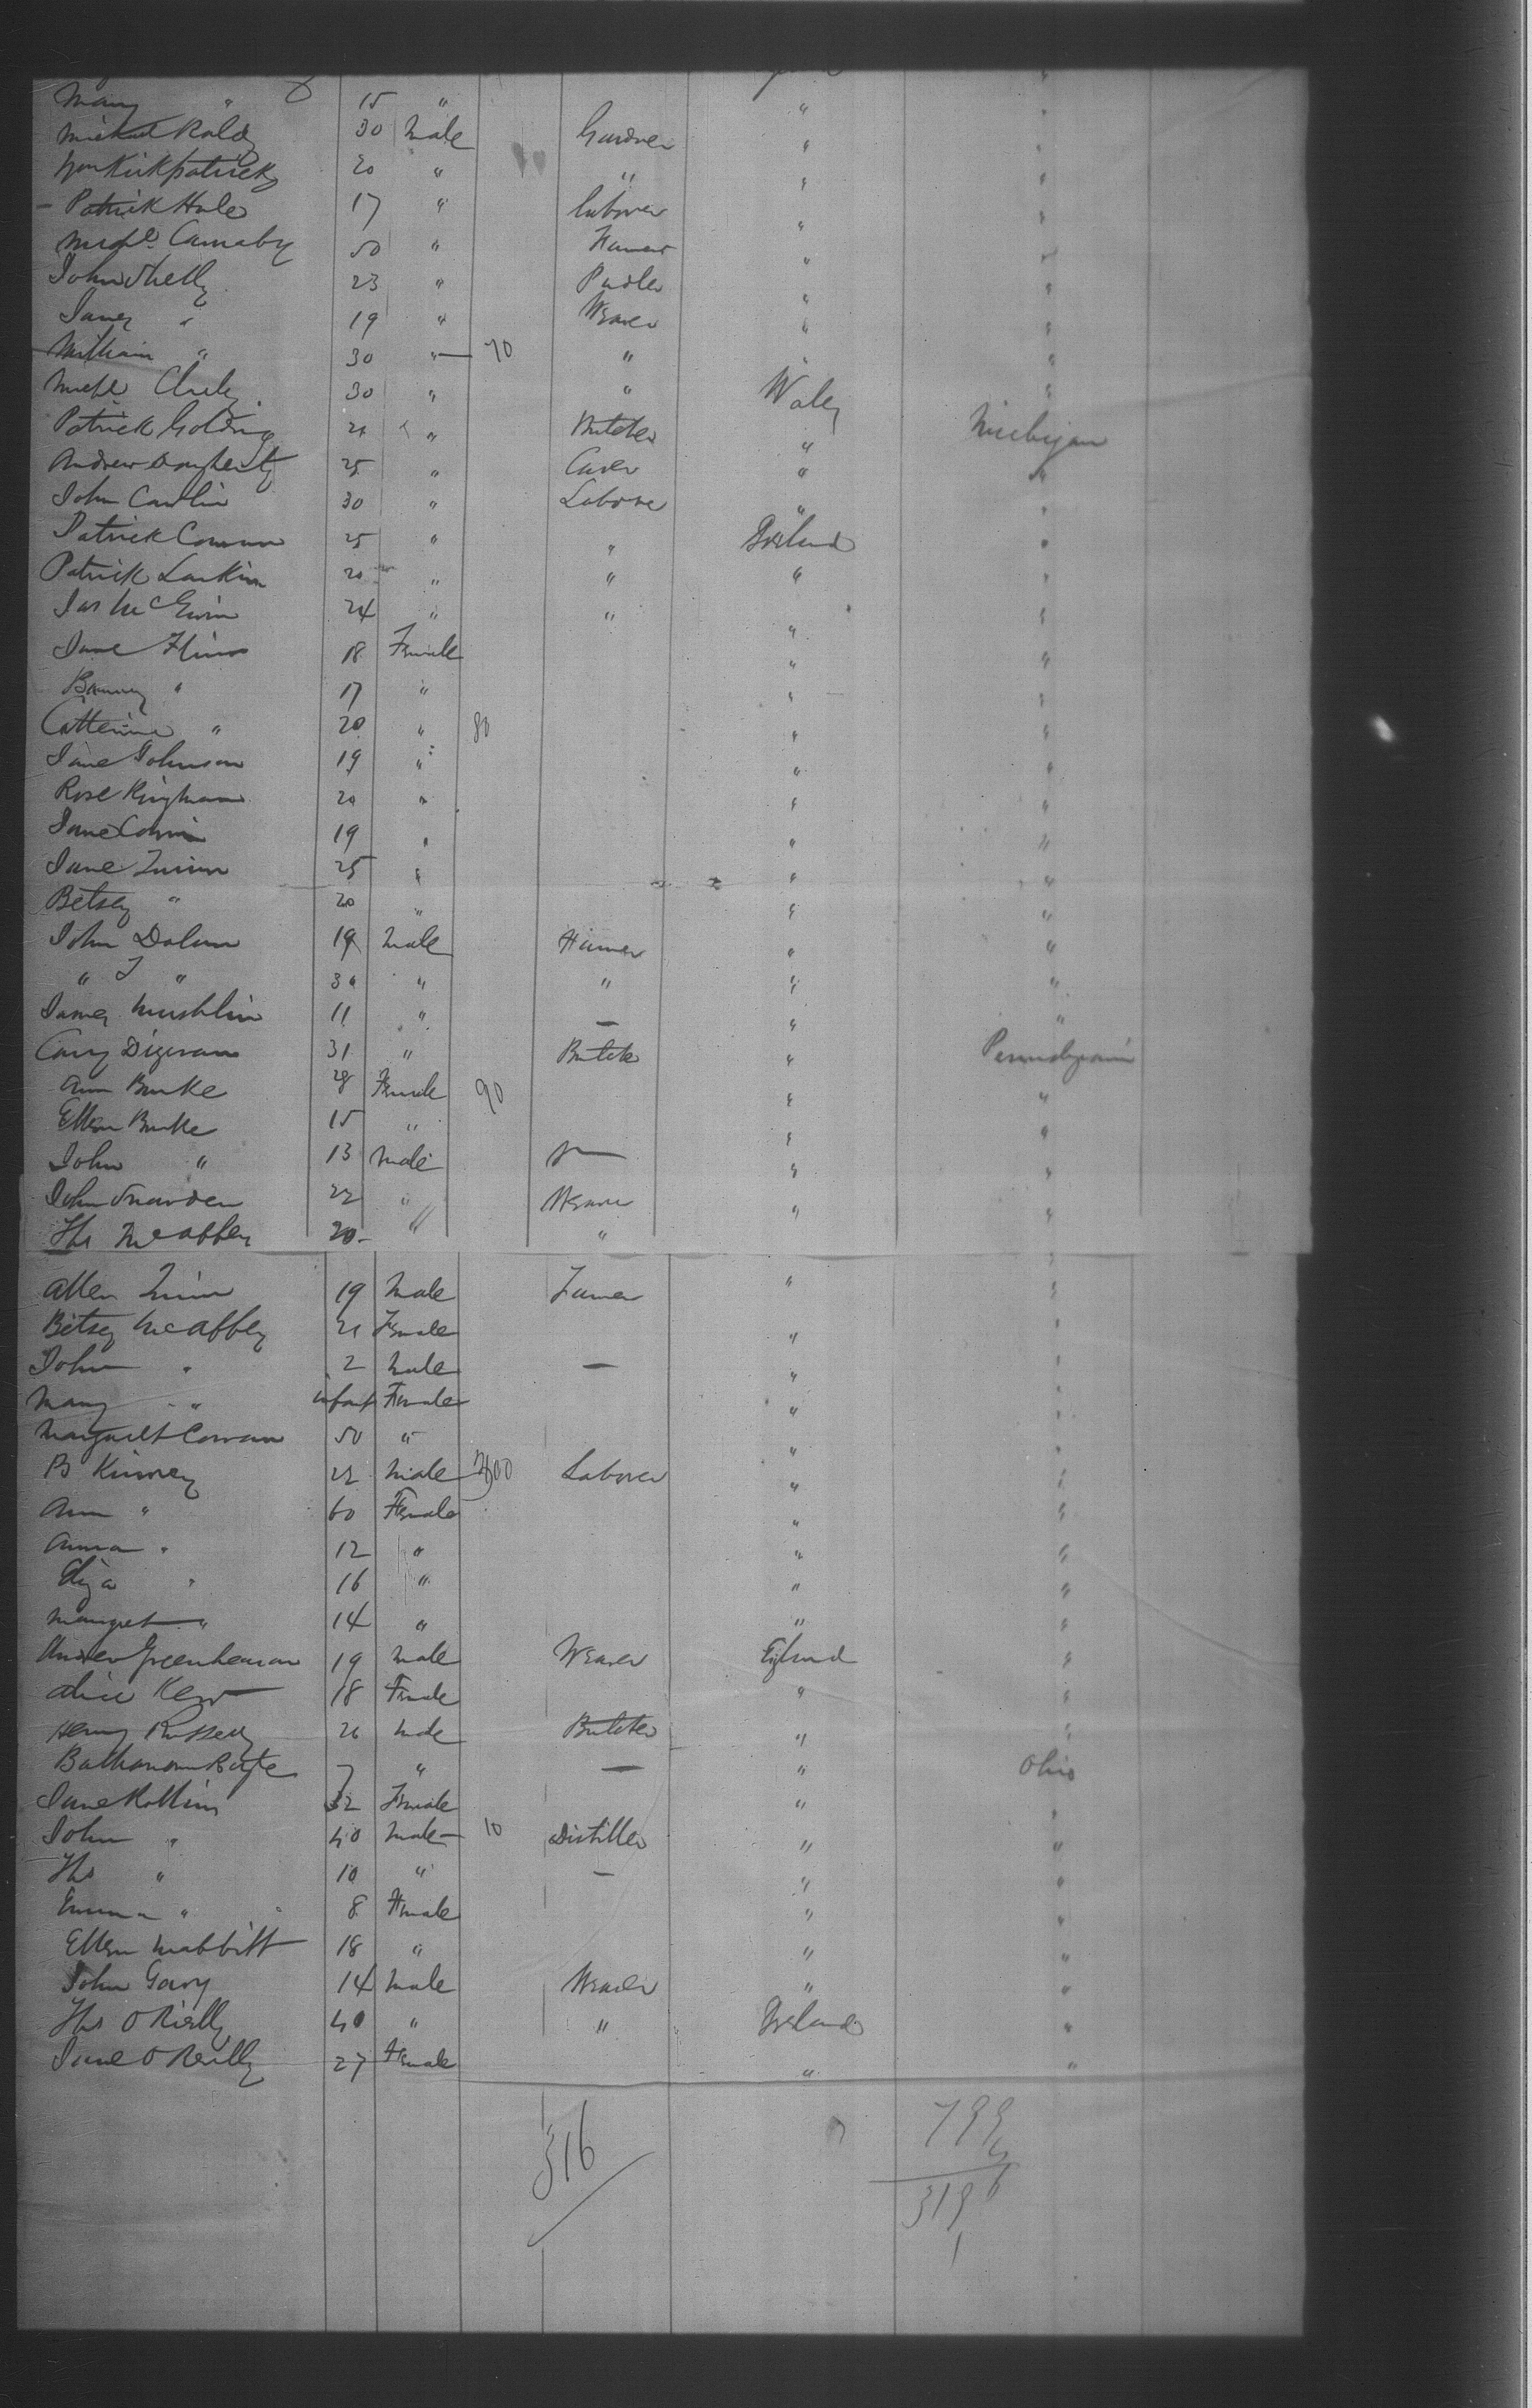 Mary " 15 " "
Michael Raldy 30 Male Gardner " "
Wm Kirkpatrick 20 " " " "
- Patrick Hale 17 " Laborer " "
Michl Carnaby 50 " Farmer " "
John Skelly 23 " Pudler " "
James " 19 " Weaver " "
William " 30 " 70 " " "
Michl 30 " " Wales "
Patrick Golding 21 " Butcher " Michigan
Andrew Dougherty 25 " Carver " "
John Carlin 30 " Laborer " "
Patrick Cowan 25 " " Ireland "
Patrick Larkin 20 " " " "
Jas McGivin 24 " " " "
Jane Flinn 18 Female " "
" 17 " " "
Catterine " 20 " 80 " "
Jane Johnson 19 " " "
Rose Kingham 20 " " "
Jane 19 " " "
Jane Quinn 25 " " "
Betsey " 20 " " "
John Dolan 19 Male Farmer " "
" J " 30 " " " "
James Mushlin 11 " — " "
Digeran 31 " Butcher " Pennsylvania
Ann Burke 28 Female 90 " "
Ellen Burke 15 " " "
John " 13 Male — " "
John Snarden 22 " Weaver " "
Ths McCaffery 20- " " "
Allen Quinn 19 Male Farmer " "
Betsey McCaffery 21 Female " "
John " 2 Male — " "
Mary " infant Female " "
Margaret Cowan 50 " " "
B Kinney 22 Male 300 Laborer " "
Ann " 60 Female " "
Anna " 12 " " "
Eliza " 16 " " "
Margret " 14 " " "
Andrew Greenhearan 19 Male Weaver England "
Alice Kerr 18 Female " "
Henry Russell 26 Male Butcher " "
7 " — " Ohio
Jane Rollins 32 Female " "
John " 40 Male 10 Distiller " "
Ths " 10 " — " "
Emma " 8 Female " "
Ellen Mabbitt 18 " " "
John Gary 14 Male Weaver " "
Ths O Rielly 40 " " Ireland "
Jane O Reilly 27 Female " "
316
799
319
1